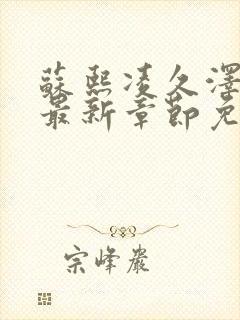 蘇熙凌久澤
最新章節免
宗峰巖